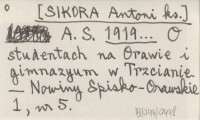 [SIKORA Antoni ks.]
A. S. 1919... O
studentach na Orawie i
gimnazyum w Trzcianie.
— Nowiny Spisko-Orawskie
1, nr 5.